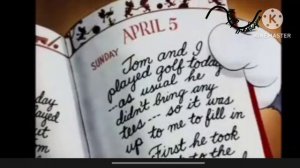 KINEMASTER
APRIL 5
SUNDAY
Tom and I
played golf today
--as usual he
didn't bring any
tees --- so it was
up to me to fill in
First he took
to the
day
played